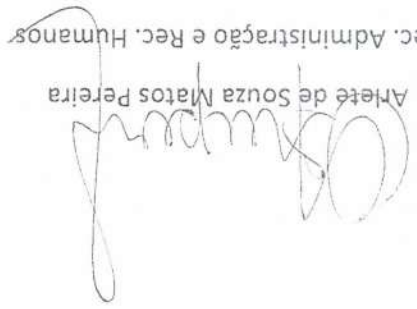 Arlete de Souza Matos Pereira
ec. Administração e Rec. Humanos